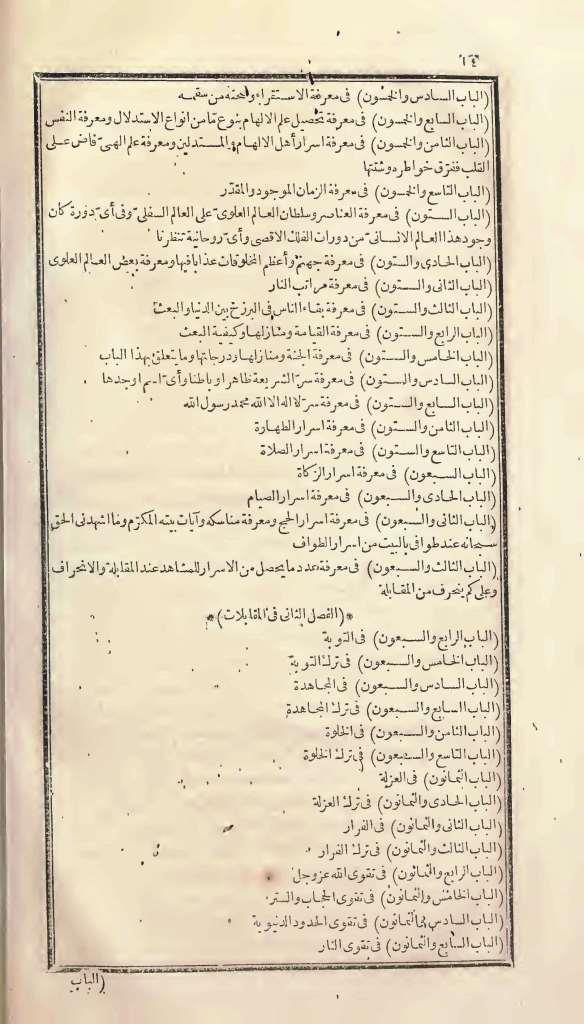 ١٤
(الباب السادس والخمسون) فى معرفة الاستقراء وصحته من سقمه
(الباب السابع والخمسون) فى معرفة تحصيل علم الالهام بنوع ما من انواع الاستدلال ومعرفة النفس
(الباب الثامن والخمسون) فى معرفة اسرار أهل الالهام المستدلين ومعرفة علم الهىّ فاض على
القلب ففرّق خواطره وشتتها
(الباب التاسع والخمسون) فى معرفة الزمان الموجود والمقدّر
(الباب الستون) فى معرفة العناصر وسلطان العالم العلوى على العالم السفلى وفى أىّ دورة كان
وجود هذا العالم الانسانىّ من دورات الفلك الاقصى وأىّ روحانية تنظرنا
(الباب الحادى والستون) فى معرفة جهنم وأعظم المخلوقات عذابا فيها ومعرفة بعض العالم العلوى
(الباب الثانى والستون) فى معرفة مراتب النار
(الباب الثالث والستون) فى معرفة بقاء الناس فى البرزخ بين الدنيا والبعث
(الباب الرابع والستون) فى معرفة القيامة ومنازلها وكيفية البعث
(الباب الخامس والستون) فى معرفة الجنة ومنازلها ودرجاتها وما يتعلق بهذا الباب
(الباب السادس والستون) فى معرفة سرّ الشريعة ظاهرا وباطنا وأىّ اسم اوجدها
(الباب السابع والستون) فى معرفة سرّ لا اله الا الله محمد رسول الله
(الباب الثامن والستون) فى معرفة اسرار الطهارة
(الباب التاسع والستون) فى معرفة اسرار الصلاة
(الباب السبعون) فى معرفة اسرار الزكاة
(الباب الحادى والسبعون) فى معرفة اسرار الصيام
(الباب الثانى والسبعون) فى معرفة اسرار الحج ومعرفة مناسكه وآيات بيته المكرّم وما اشهدنى الحق
سبحانه عند طوافى بالبيت من اسرار الطواف
(الباب الثالث والسبعون) فى معرفة عدد ما يحصل من الاسرار للمشاهد عند المقابلة والانحراف
وعلى كم ينحرف من المقابلة
*(الفصل الثانى فى المقابلات)*
(الباب الرابع والسبعون) فى التوبة
(الباب الخامس والسبعون) فى ترك التوبة
(الباب السادس والسبعون) فى المجاهدة
(الباب السابع والسبعون) فى ترك المجاهدة
(الباب الثامن والسبعون) فى الخلوة
(الباب التاسع والسبعون) فى ترك الخلوة
(الباب الثمانون) فى العزلة
(الباب الحادى والثمانون) فى ترك العزلة
(الباب الثانى والثمانون) فى الفرار
(الباب الثالث والثمانون) فى ترك الفرار
(الباب الرابع والثمانون) فى تقوى الله عز وجل
(الباب الخامس والثمانون) فى تقوى الحجاب والستر
(الباب السادس والثمانون) فى تقوى الحدود الدنيوية
(الباب السابع والثمانون) فى تقوى النار
(الباب